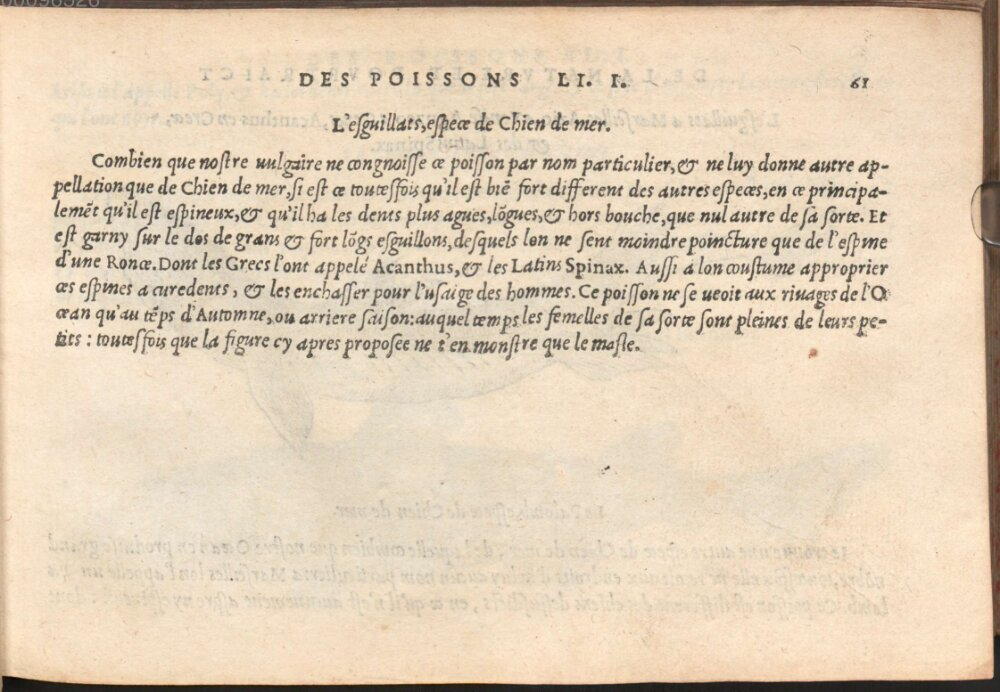 DES POISSONS LI. I. 61
L'esguillats, espece de Chien de mer.
Combien que nostre uulgaire ne congnoisse ce poisson par nom particulier, & ne luy donne autre ap-
pellation que de Chien de mer, si est ce toutesfois qu'il est biẽ fort different des autres especes, en ce principa-
lemẽt qu'il est espineux, & qu'il ha les dents plus agues, lõgues, & hors bouche, que nul autre de sa sorte. Et
est garny sur le dos de grans & fort lõgs esguillons, desquels lon ne sent moindre poincture que de l'espine
d'une Ronce. Dont les Grecs l'ont appelé Acanthus, & les Latins Spinax. Aussi á lon coustume approprier
ces espines a curedents, & les enchasser pour l'usaige des hommes. Ce poisson ne se ueoit aux riuages de l'O
cean qu'au tẽps d'Automne, ou arriere saison: auquel temps les femelles de sa sorte sont pleines de leurs pe-
tits: toutesfois que la figure cy apres proposée ne t'en monstre que le masle.